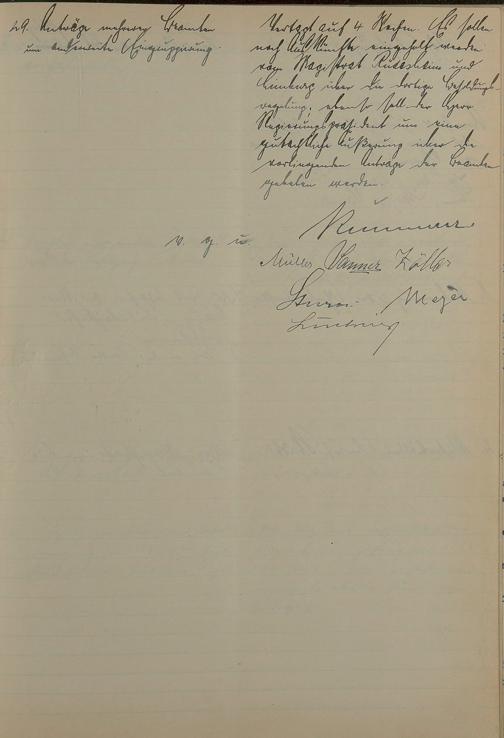 29. Anträge mehrerer Beamten
um anderweite Eingruppierung.
Vertagt auf 4 Wochen. Es sollen
noch Auskünfte eingeholt werden
vom Magistrat Rüdesheim und
Limburg über die dortige Besoldungs-
regelung, ebenso soll der Herr
Regierungspräsident um eine
gutachtliche Äußerung über die
vorliegenden Anträge der Beamten
gebeten werden.
v. g. u.
Müller Zöller
Meyer